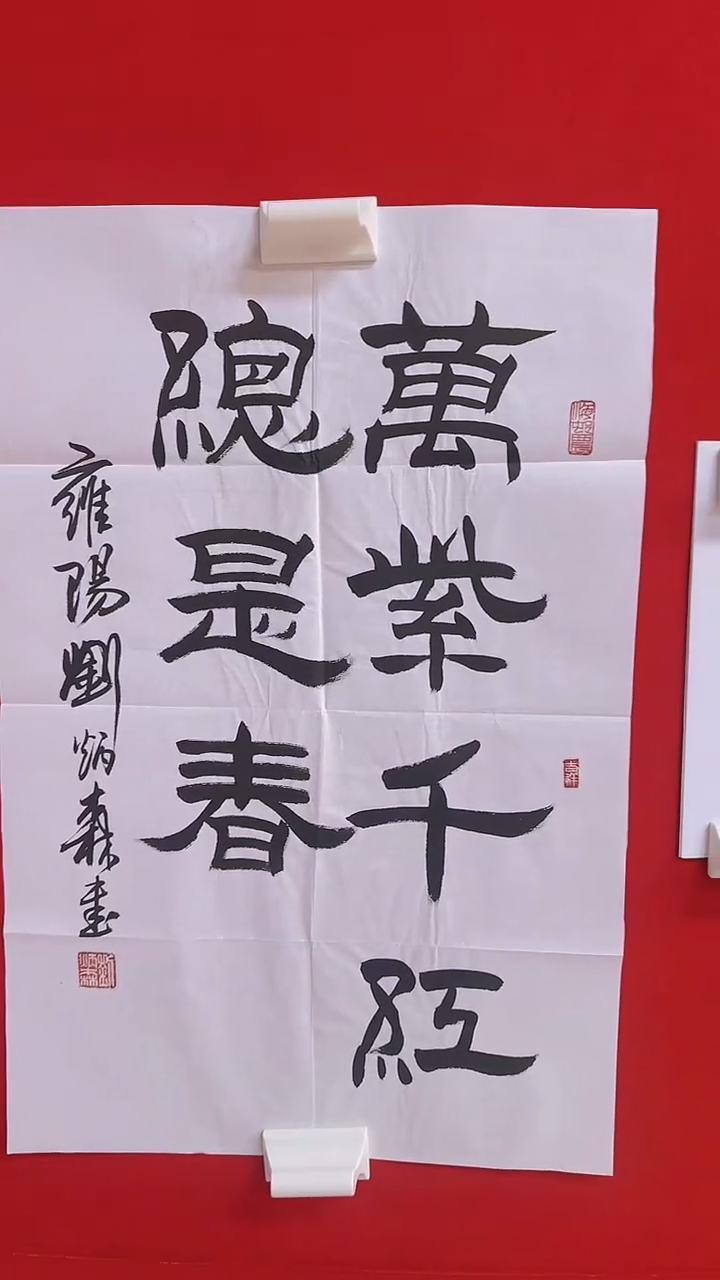 萬紫千紅
總是春
雍陽劉炳森書